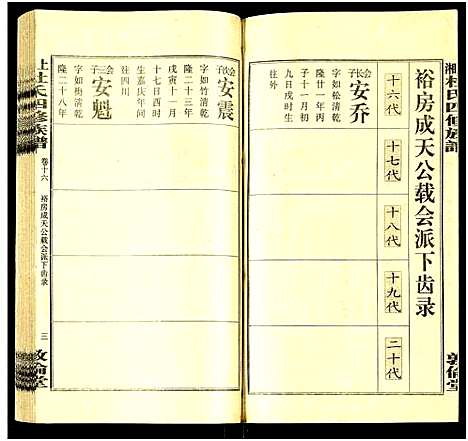 湘杜氏四修族譜
敦倫堂
裕房成天公载会派下齿录
十六代
十七代
十八代
十九代
二十代
会长子
安乔
字如松清乾
隆廿一年丙
九日戌时生
往外
会子
安震
字如竹清乾
隆二十三年
戊寅十一月
十七日酉时
生嘉庆年间
往四川
会子
安魁
字如梅清乾
隆二十八年
上杜氏四修族譜
卷十六
裕房成天公载会派下齿录
三
敦倫堂